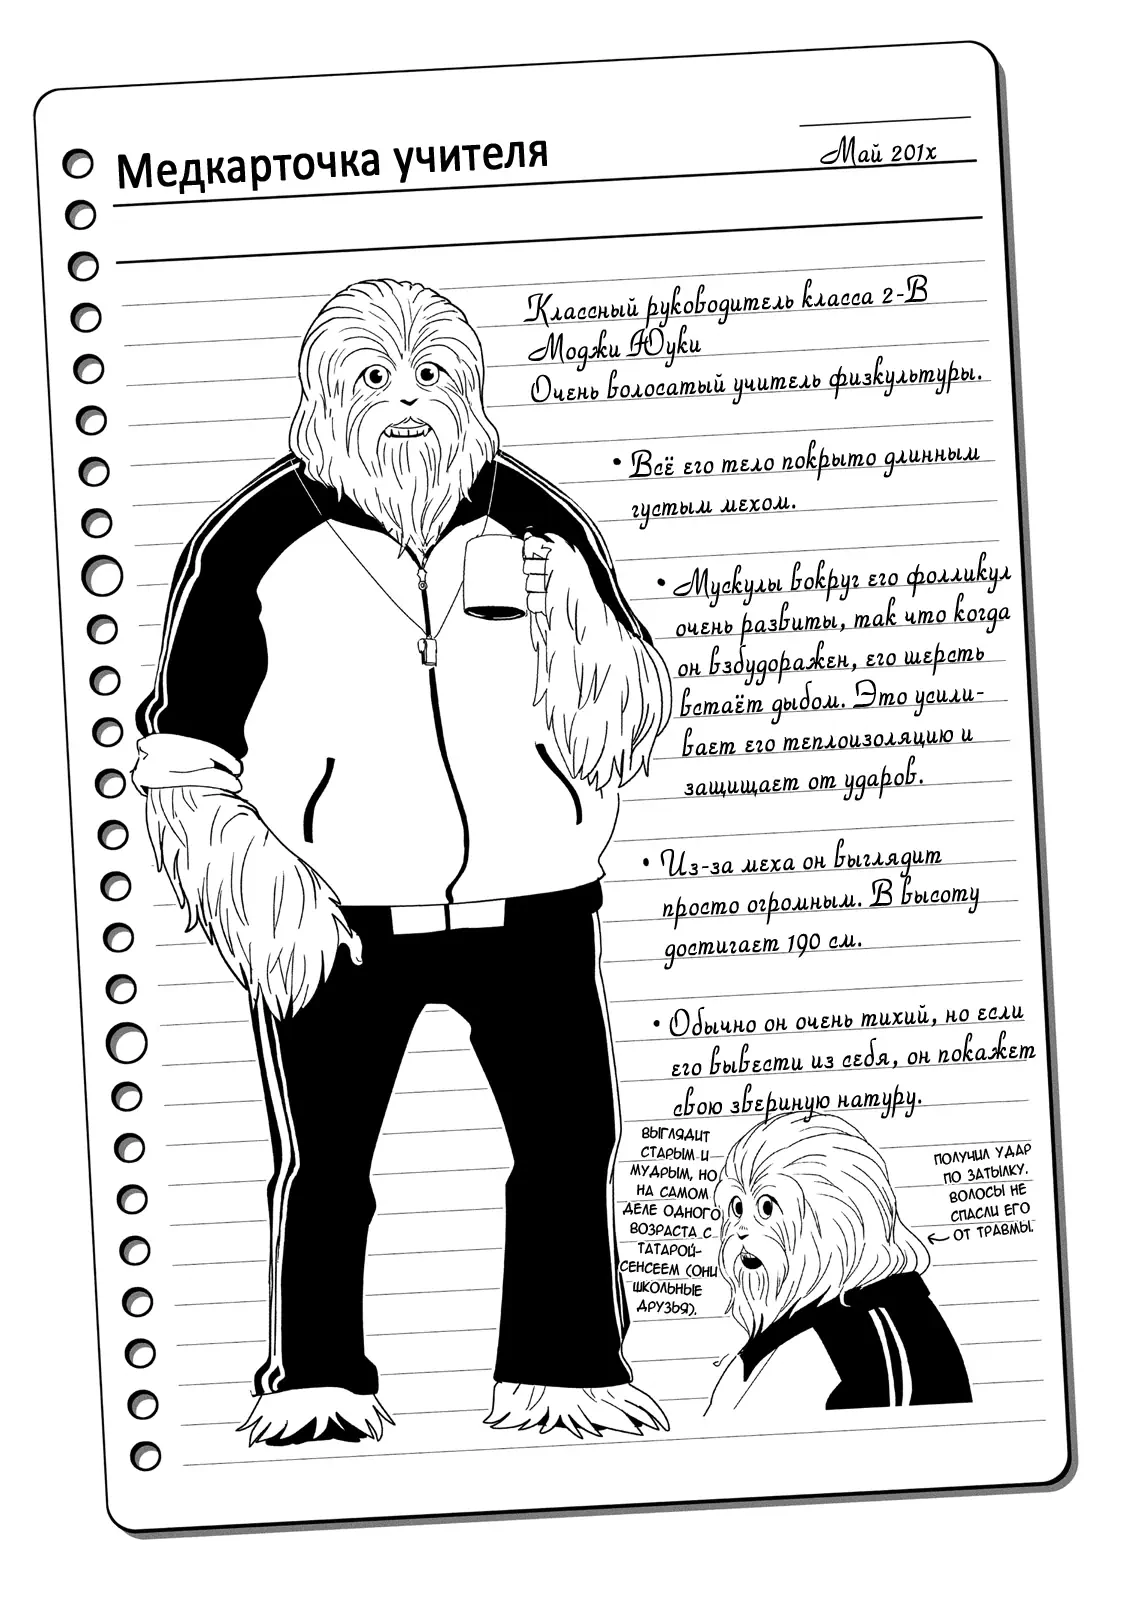 Медкарточка учителя
Май 201x
Классный руководитель класса 2-В
Моджи Юуки
Очень волосатый учитель физкультуры.
• Всё его тело покрыто длинным
густым мехом.
• Мускулы вокруг его фолликул
очень развиты, так что когда
он взбудоражен, его шерсть
встаёт дыбом. Это усили-
вает его теплоизоляцию и
защищает от ударов.
• Из-за меха он выглядит
просто огромным. В высоту
достигает 190 см.
• Обычно он очень тихий, но если
его вывести из себя, он покажет
свою звериную натуру.
ВЫГЛЯДИТ
СТАРЫМ И
МУДРЫМ, НО
НА САМОМ
ДЕЛЕ ОДНОГО
ВОЗРАСТА С
ТАТАРОЙ-
СЕНСЕЕМ (ОНИ
ШКОЛЬНЫЕ
ДРУЗЬЯ).
ПОЛУЧИЛ УДАР
ПО ЗАТЫЛКУ.
ВОЛОСЫ НЕ
СПАСЛИ ЕГО
ОТ ТРАВМЫ.